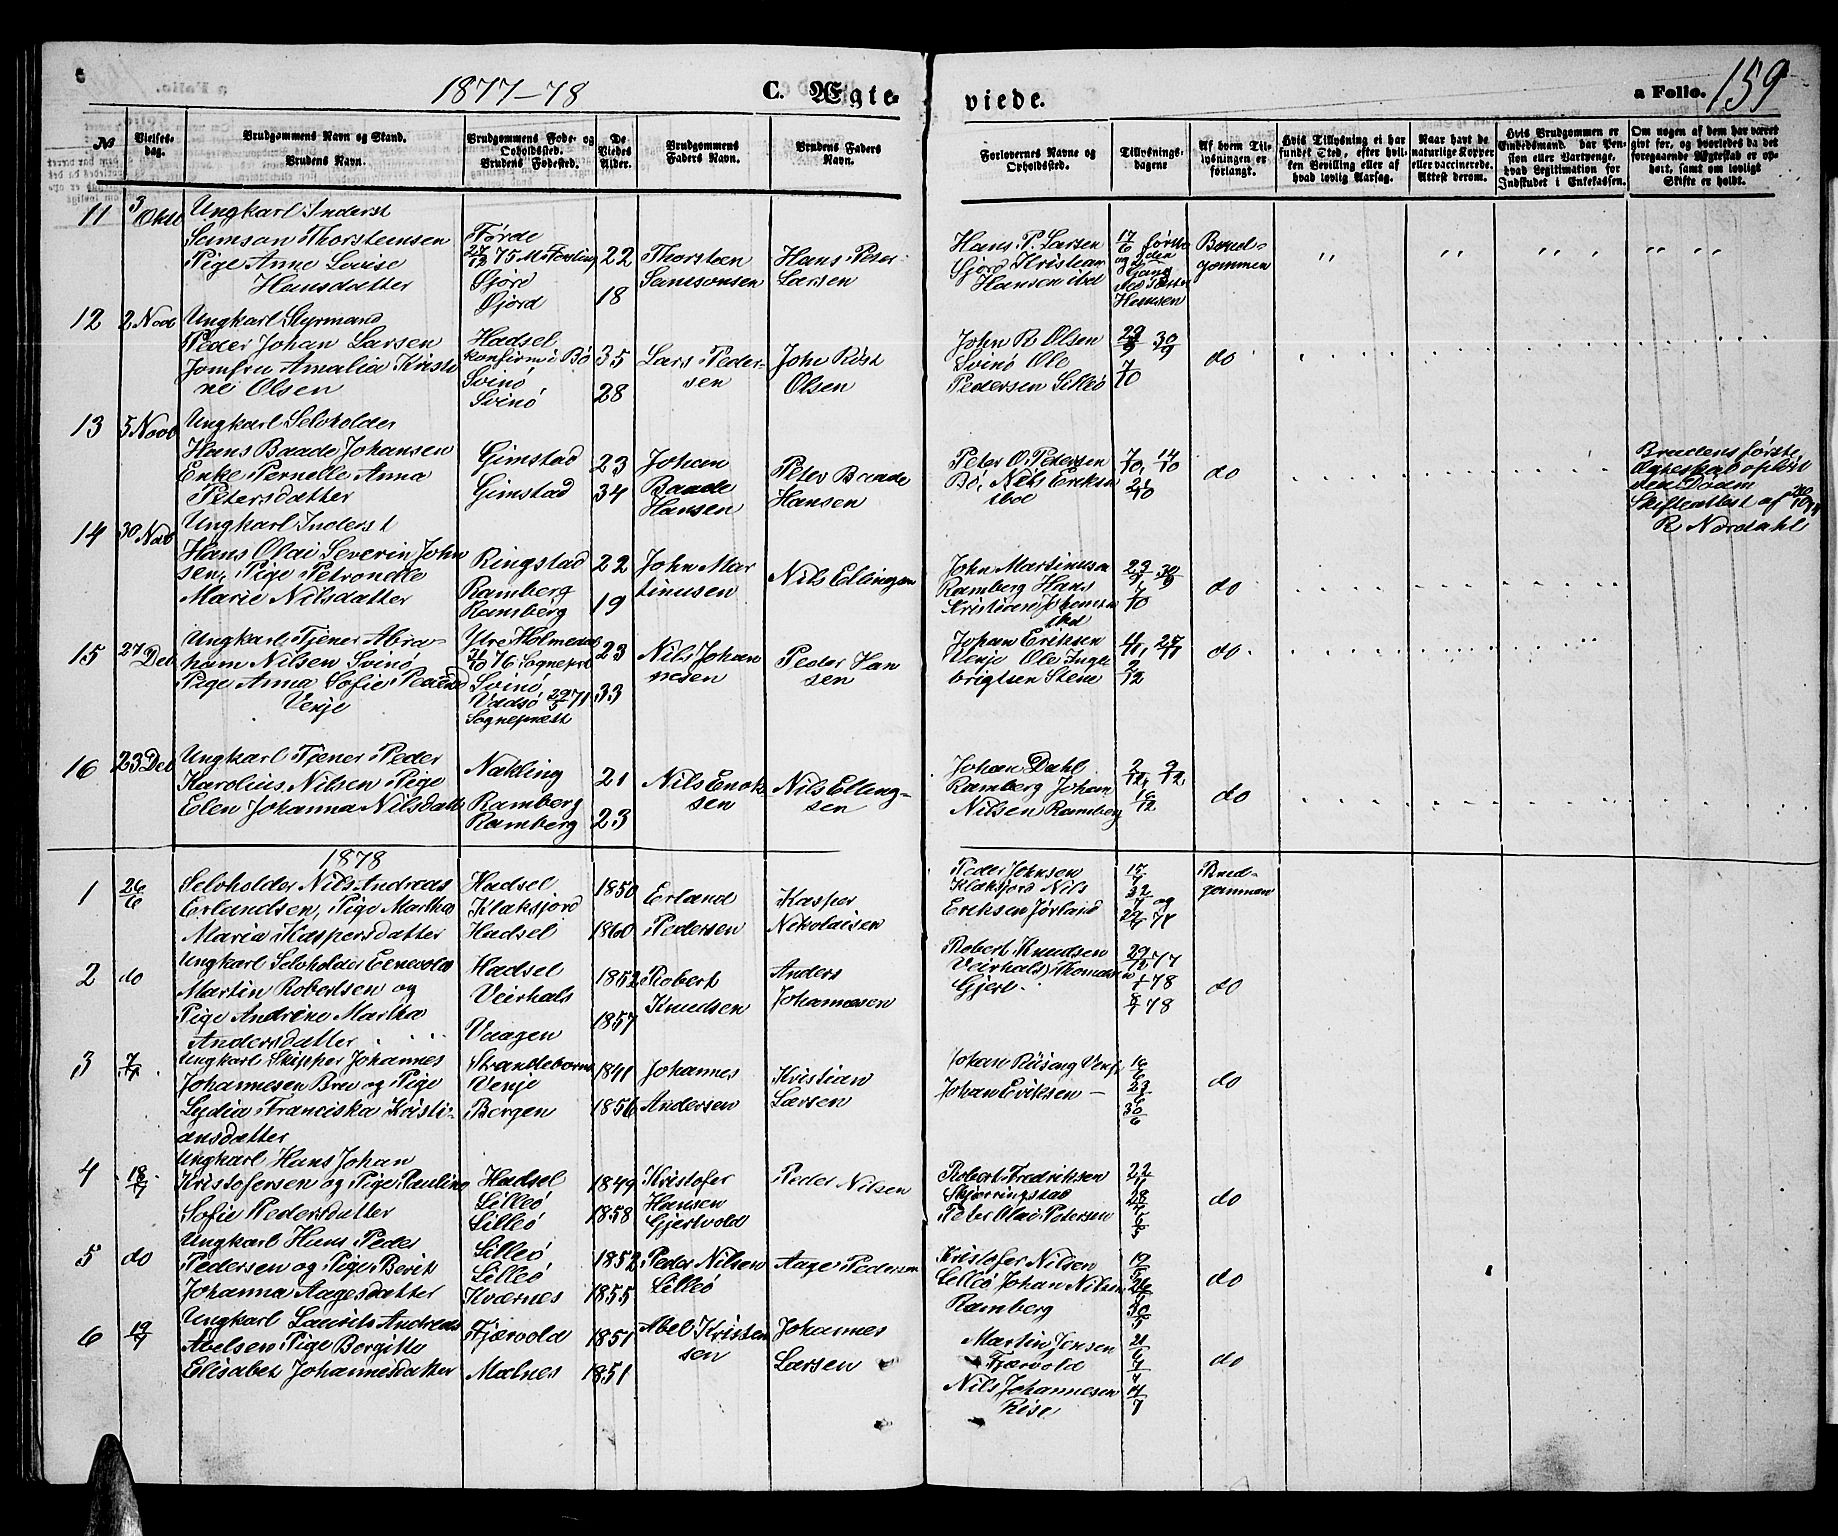 1877-78
C. Ægte-
viede.
a Folio. 159
No
Vielses-
dag.
Brudgommens Navn og Stand.
Brudens Navn.
Brudgommens Føde- og
Opholdssted.
Brudens Fødested.
De
Viedes
Alder.
Brudgommens
Faders Navn.
Brudens Faders
Navn.
Forlovernes Navne og
Opholdssted.
Tillysnings-
dagene
Af hvem Til-
lysningen er
forlangt.
Hvis Tillysning ei har
fundet Sted, efter hvil-
ken Bevilling eller af
hvad lovlig Aarsag.
Naar havt de
naturlige Kopper
eller vaccinerede.
Attest derom.
Hvis Brudgommen er
Embedsmand, har Pen-
sion eller Vartpenge,
hvad Legitimation for
Indskudet i Enkekassen.
Om nogen af dem har været
givt før, og hvorledes da det
foregaaende Ægteskab er op-
hørt, samt om lovligt
Skifte er holdt.
11 3 Oktb
Ungkarl Inderst
Samson Thorsteensen
Pige Anne Lovise
Hansdatter
Førde
27/12 75 M. Forsling
Gjøre
Gjørd
22
18
Thorsteen
Samsonsen
Hans Peter
Larsen
Hans P. Larsen
Gjörd Kristian
Hansen ibd
17/6 første
og 2den
Gang
Hansen
Brud-
gommen
12 2 Novb
Ungkarl Styrmand
Peder Johan Larsen
Jomfru Amalia Kristi
ne Olsen
Hadsel
konfirm i Bö
Svinö
Svinö
35
28
Lars Peder-
sen
John Röst
Olsen
John R. Olsen
Svinö Ole
Pedersen Lilleö
23/9 30/9
7/10
do
13 5 Novb
Ungkarl Selvholder
Hans Baade Johansen
Enke Pernelle Anna
Petersdatter
Gimstad
Gimstad
23
34
Johan
Baade
Hansen
Peter Baade
Hansen
Peter O. Petersen
Bö, Nils Eriksen
ibd
7/10, 14/10
21/10
do
Brudens første
Ægteskab ophört
ved Döden
Skifteattest af
R. Nordahl
14 30 Nob
Ungkarl Inderst
Hans Olai Severin John
sen, Pige Petronelle
Marie Nilsdatter
Ringstad
Ramberg
Ramberg
22
19
John Mar
tinusen
Nils Ellingsen
John Martinusen
Ramberg Hans
Kristian Johansen
ibd
23/9 30/9
7/10
do
15 27 Deb
Ungkarl Tjener Abra-
ham Nilsen Svinö
Pige Anna Sofie Pedersd
Venje
Ure Holmenes
76 Sognepr
Svinö,
Vadsö 71
Sognepræst
23
33
Nils Johan
nesen
Peder Han
sen
Johan Eriksen
Venje Ole Inge
brigtsen Stene
4/11, 25/11
2/12
do.
16 23 Deb
Ungkarl Tjener Peder
Karolius Nilsen Pige
Elen Johanna Nilsdatt
Nökling
Ramberg
Ramberg
21
23
Nils Enok
sen
Nils Elling-
sen
Johan Dahl
Ramberg Johan
Nilsen Ramberg
2/12, 9/12
16/12
do
1878
1 26/6
Selvholder Nils Andreas
Erlandsen, Pige Martha
Maria Kaspersdatter
Hadsel
Klaksjord
Hadsel
1850
1860
Erland
Pedersen
Kasper
Nikolaisen
Peder Johnsen
Klaksjord Nils
Eriksen Jörland
Brud-
gommen
2 do
Ungkarl Selvholder Enevold
Martin Robertsen og
Pige Andrine Martha
Andersdatter
Hadsel
Veirhals
Vaagen
1852
1857
Robert
Knudsen
Anders
Johannesen
Robert Knudsen
Veirhals, Thomas
Gjert
29/12 77
1/1 78
6/1 78
do
3 7/7
Ungkarl Skipper Johannes
Johannesen Breu og Pige
Lydia Franciska Kristi-
ansdatter
Strandebarm
Venje
Bergen
1841
1856
Johannes
Andersen
Kristian
Larsen
Johan Rüsong Venje
Johan Eriksen
16/6
23/6
30/6
do
4 18/7
Ungkarl Hans Johan
Kristofersen og Pige Pauline
Sofie Pedersdatter
Hadsel
Lilleö
Lilleö
1849
1858
Kristofer
Hansen
Gjertvold
Peder Nilsen
Robert Fredriksen
Skjörringstad
Peter Olai Petersen
do
5 do
Ungkarl Hans Peder
Pedersen og Pige Berit
Johanna Aagesdatter
Lilleö
Lilleö
Kværnes
1852
1855
Peder Nilsen
Lilleö
Aage Pedersen
Kristofer Nilsen
Lilleö Johan Nilsen
Ramberg
do
6 19/7
Ungkarl Laurits Andreas
Abelsen Pige Bergitte
Elisabet Johannesdatter
Fjærvold
Malnes
1851
1851
Abel Kristen
sen
Johannes
Larsen
Martin Jensen
Fjærvold
Nils Johannesen
Rise
do